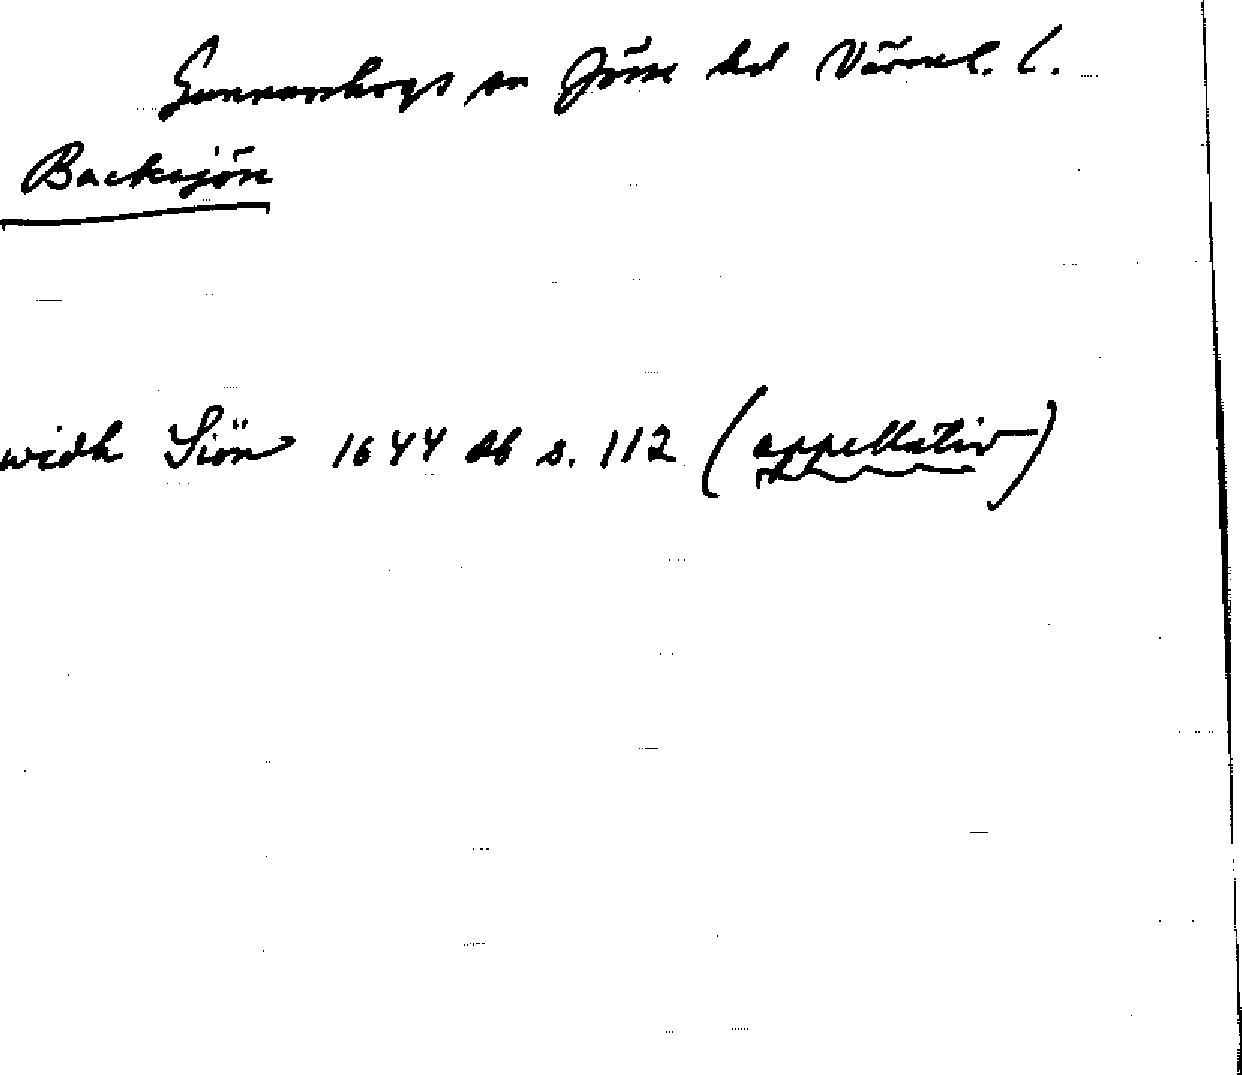 Gunnarskogs sn Jösse hd Värml. l.
Backsjön
widh Siön 1644 db s. 112 (appellativ)